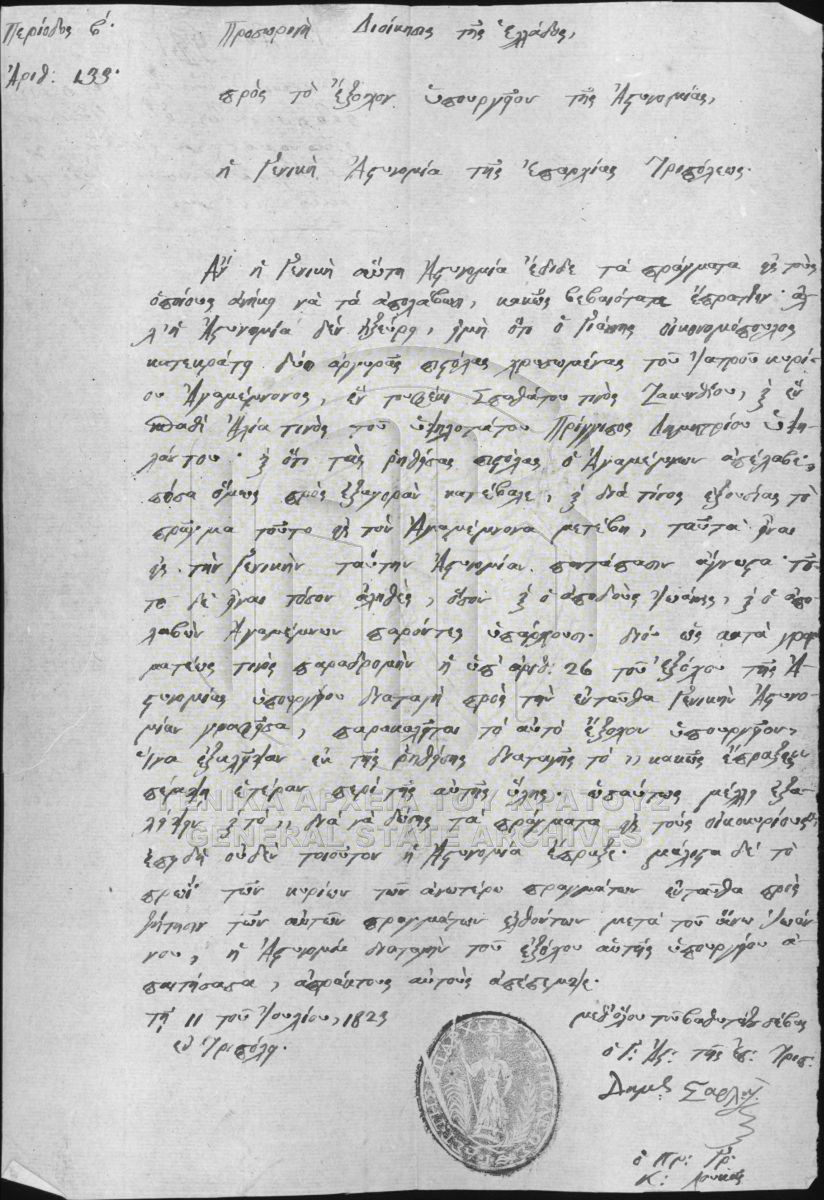 Περίοδος β΄.
Ἀριθ: 133.
Προσωρινὴ Διοίκησις τῆς Ἑλλάδος,
πρὸς τὸ ἔξοχον ὑπουργεῖον τῆς Ἀστυνομίας,
ἡ Γενικὴ Ἀστυνομία τῆς Ἐπαρχίας Τριπόλεως.
Ἂν ἡ Γενικὴ αὕτη Ἀστυνομία ἔδιδε τὰ πράγματα εἰς τοὺς
ὁποίους ἀνήκει νὰ τὰ ἀπολάβωσι, κακῶς βεβαιότατα ἔπραττεν· ἀλ
λ' ἡ Ἀστυνομία δὲν ἠξεύρει, εἰμὴ ὅτι ὁ Γιάννης οἰκονομόπουλος
κατεκράτει δύω ἀργυρᾶς πιστόλας χρυσωμένας τοῦ Ἰατροῦ κυρί-
ου Ἀγαμέμνονος, ἓν τουφέκι Σπαθάτου τινὸς Ζακυνθίου, καὶ ἓν
σπαθὶ Ἠλία τινὸς τοῦ ὑψηλοτάτου Πρίγγιπος Δημητρίου Ὑψη-
λάντου· καὶ ὅτι τὰς ῥηθείσας πιστόλας ὁ Ἀγαμέμνων ἀπέλαβε·
πόσα ὅμως πρὸς ἐξαγορὰν κατέβαλε, καὶ διὰ τίνος ἐξουσίας τὸ
πρᾶγμα τοῦτο εἰς τὸν Ἀγαμέμνονα μετέβη, ταῦτα εἶναι
εἰς τὴν Γενικὴν ταύτην Ἀστυνομίαν παντάπασιν ἄγνωστα· τοῦ-
το δὲ εἶναι τόσον ἀληθὲς, ὅσον καὶ ὁ ἀποδοὺς Ἰωάννης, καὶ ὁ ἀπο-
λαβὼν Ἀγαμέμνων παρόντες ὑπάρχουσι. διὸ ὡς κατὰ γραμ
ματέως τινὸς παραδρομὴν ἡ ὑπ' ἀριθ: 26 τοῦ ἐξόχου τῆς Ἀ-
στυνομίας ὑπουργείου διαταγὴ πρὸς τὴν ἐνταῦθα Γενικὴν Ἀστυνο-
μίαν γραφεῖσα, παρακαλεῖται τὸ αὐτὸ ἔξοχον ὑπουργεῖον,
ἵνα ἐξαλεῖψαν ἐκ τῆς ῥηθείσης διαταγῆς τὸ ,, κακῶς ἔπραξες,,
πέμψῃ ἑτέραν περὶ τῆς αὐτῆς ὕλης. ὡσαύτως μέλλει ἐξα-
λείψειν καὶ τὸ ,, διὰ νὰ δώσῃς τὰ πράγματα εἰς τοὺς οἰκοκυρίους,,
ἐπειδὴ οὐδὲν τοιοῦτον ἡ Ἀστυνομία ἔπραξε. μάλιστα δὲ τὸ
πρωῒ τῶν κυρίων τῶν ἀνωτέρω πραγμάτων ἐνταῦθα πρὸς
ζήτησιν τῶν αὐτῶν πραγμάτων ἐλθόντων μετὰ τοῦ ἄνω Ἰωάν
νου, ἡ Ἀστυνομία διαταγὴν τοῦ ἐξόχου αὐτῆς ὑπουργείου ἀ-
παιτήσασα, ἀπράκτους αὐτοὺς ἀπέπεμψε.
τῇ 11 τοῦ Ἰουλίου, 1823
ἐν Τριπόλει.
μεθ' ὅλου τοῦ βαθυτάτου σέβας
ὁ Γ: Ἀστ: τῆς Ἐπ: Τριπ:
ὁ Πρ: Γρ:
ΓΕΝΙΚΑ ΑΡΧΕΙΑ ΤΟΥ ΚΡΑΤΟΥΣ
GENERAL STATE ARCHIVES